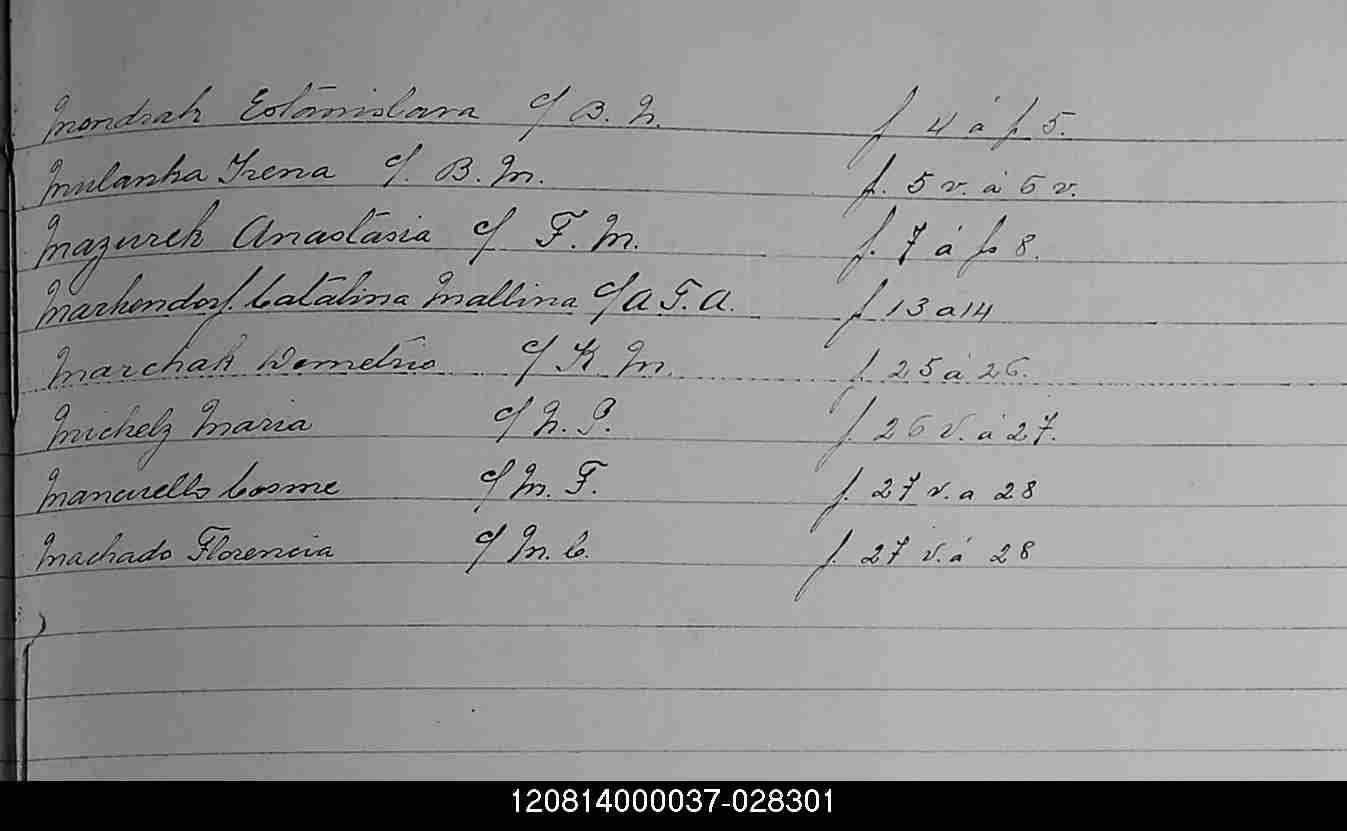 Mondrak Estanislava c/ B. N. f 4 á f 5.
Mulanka Irena c/. B. M. f. 5 v. á 6 v.
Mazurek Anastásia c/ F. M. f. 7 á fs 8.
Markendorf. Catalina Mallina c/ A F. A. f 13 a 14
Marchak Demetrio c/ K M. f. 25 á 26.
Michelz Maria c/ N. P. f. 26 v. á 27.
Mancuello Cosme c/ M. F. f. 27 v. a 28
Machado Florencia c/ M. C. f. 27 v. á 28
120814000037-028301